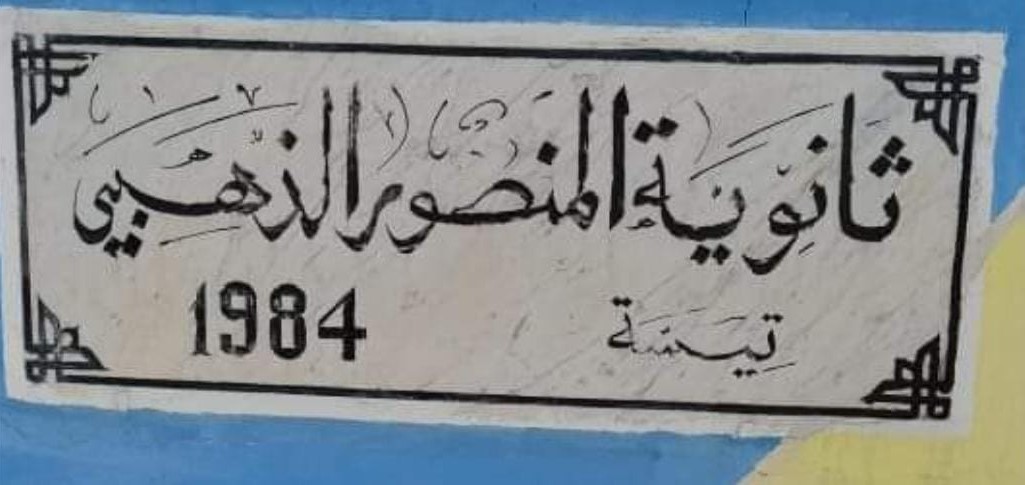 ثانوية المنصور الذهبي
تيسة 1984